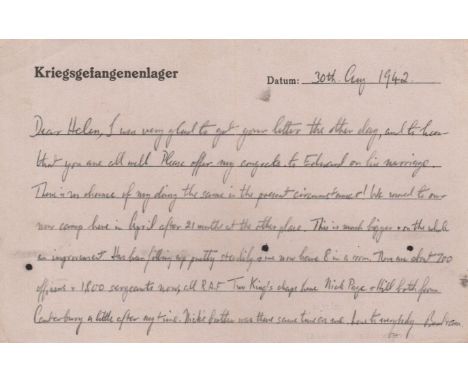 Kriegsgefangenenlager
Datum: 30th. Aug 1942.
Dear Helen, I was very glad to get your letter the other day, and to hear
that you are all well. Please offer my congrats. to Edward on his marriage.
There is no chance of my doing the same in the present circumstances! We moved to our
new camp here in April after 21 months at the other place. This is much bigger & on the whole
an improvement. Has been filling up pretty steadily & we now have 8 in a room. There are about 700
officers & 1800 sergeants now, all R.A.F. Two King's chaps here Nick Page & Hill both from
Canterbury a little after my time. Nick's brother was there same time as me. Love to everybody Bertram